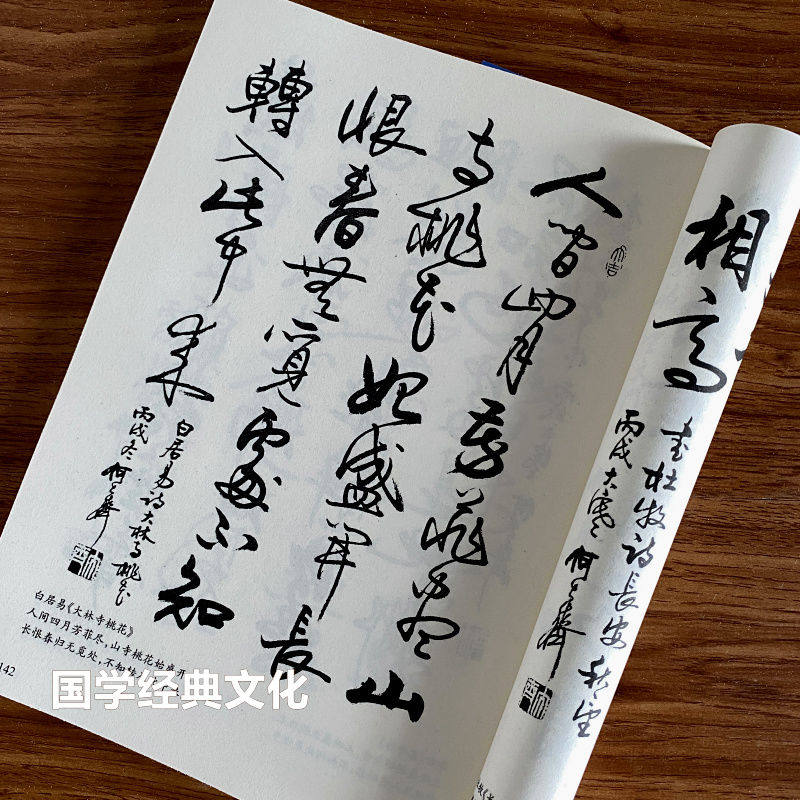 相高
書杜牧詩長安秋望
丙戌大寒 何
人間四月芳菲盡山
寺桃花始盛開長
恨春無覓處不知
轉入此中來
白居易詩大林寺桃花
丙戌冬 何
白居易《大林寺桃花》
人间四月芳菲尽，山寺桃花始盛开
长恨春归无觅处，不知转
142
国学经典文化